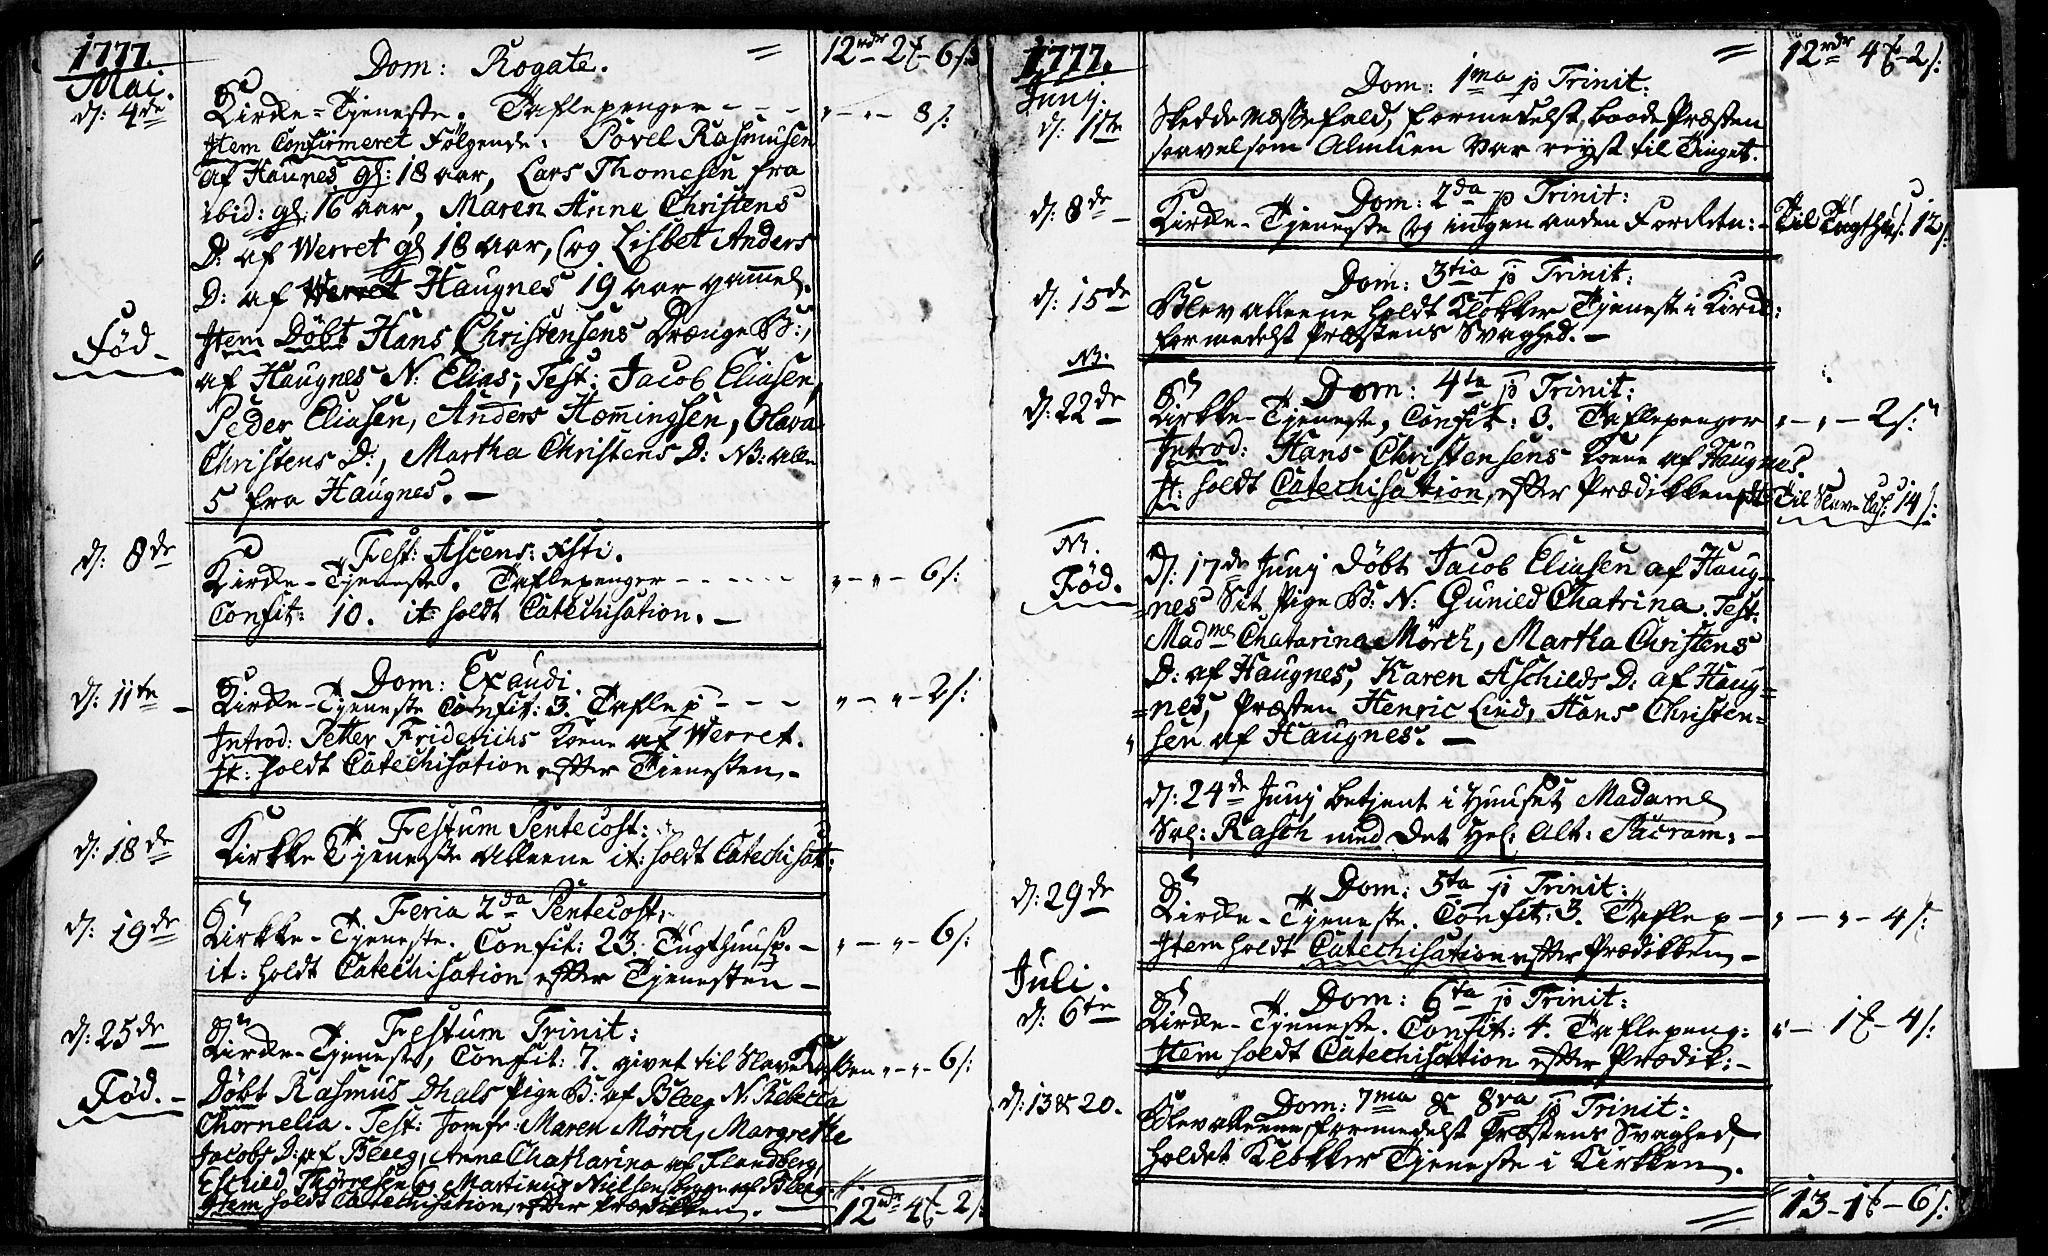 1777.
Mai.
12 rdr 2 ℔ - 6 ſ:
Dom: Rogate.
d: 4de
Kirche-Tjeneste. Taflepenger - - - „ - „ - 8 ſ:
Item Confirmeret Følgende. Povel Rasmusen
af Haunes gl: 18 aar, Lars Thomesen fra
ibid: gl: 16 aar, Maren Anne Christens
D: af Werret gl 18 aar, Og Lisbet Anders
D: af Werret Haugnes 19 aar gammel.
Fød -
Item Döbt Hans Christensens Drænge B:,
af Haugnes N: Elias, Test: Jacob Eliasen,
Peder Eliasen, Anders Hemingsen, Olava
Christens D:, Martha Christens D: NB: alle
5 fra Haugnes. -
Fest: Ascens: Xsti.
d: 8de
Kirke-Tjeneste. Taflepenger - - - - - „ - „ - 6 ſ:
Confit: 10. it: holdt Catechisation. -
Dom: Exaudi.
d: 11te -
Kirke-Tjeneste Confit: 3. Tafle p - - - „ - „ - 2 ſ:
Introd: Petter Friderichs Kone af Werret.
It: holdt Catechisation efter Tienesten -
Festum Pentecost:
d: 18de
Kirkke Tjeneste alleene it: holdt Catechisat:
Feria 2da Pentecost:
d: 19de
Kirkke-Tjeneste. Confit: 23. Tugthuusp. - „ - „ - 6 ſ:
it: holdt Catechisation efter Tjenesten -
Festum Trinit:
d: 25de
Kirke-Tjeneste, Confit: 7. givet til Slave Kassen „ - „ - 6 ſ:
Fød. -
Döbt Rasmus Dhals Pige B: af Bleeg N. Rebecca
Chornelia. Test: Jomfr: Maren Mörch, Margrethe
Jacobs D: af Bleeg, Anna Chatharina af Flandberg,
Eschild Thorresen Og Martinus Nielsen begge af Bleeg
Item holdt Catechisation efter Prædikken. -
12 dr 4 ℔ - 2 ſ:
1777.
Junij.
12 rdr 4 ℔ - 2 ſ:
Dom: 1ma p Trinit:
d: 1te
Skedde Messefald, formedelst baade Præsten
saavelsom Almuen var reyst til Tinget.
Dom: 2da p Trinit:
d: 8de -
Kirke-Tjeneste Og ingen anden Forretn: - Til Tugthus: 12 ſ:
Dom: 3tia p Trinit:
d: 15de
Blev alleene holdt Klokker Tjeneste i Kirck:
formedelst Præstens Svaghed. -
NB.
Dom: 4ta p Trinit:
d: 22de
Kirkke-Tjeneste, Confit: 8. Taflepenger „ - „ - 2 ſ:
Introd: Hans Christensens Kone af Haugnes.
It: holdt Catechisation efter Prædikken Til Slave Cas: 14 ſ:
NB.
Fød.
d: 17de Junij Döbt Jacob Eliasen af Haug-
=nes Sit Pige B: N: Gunild Chatrina. Test:
Madme Chatarina Mörch, Martha Christens
D: af Haugnes, Karen Aschilds D: af Haug=
=nes, Præsten Henric Lind, Hans Christen=
sen af Haugnes. -
d: 24de Junij betjent i Huuset Madame
Sal: Rasch med Det Hel: Alt: Sacram: -
Dom: 5ta p Trinit:
d: 29de
Kirke-Tjeneste. Confit: 3. Tafle p - „ - „ - 4 ſ:
Item holdt Catechisation efter Prædikken -
Juli.
Dom: 6ta p Trinit:
d: 6te
Kirke-Tjeneste. Confit: 4. Taflepeng: „ - 1 ℔ - 4 ſ:
Item holdt Catechisation efter Prædik: -
Dom: 7ma & 8va p Trinit:
d: 13 & 20.
Blev alleene, formedelst Præstens Svaghed,
holdet Klokker Tjeneste i Kirkken.
13 - 1 ℔ - 6 ſ: